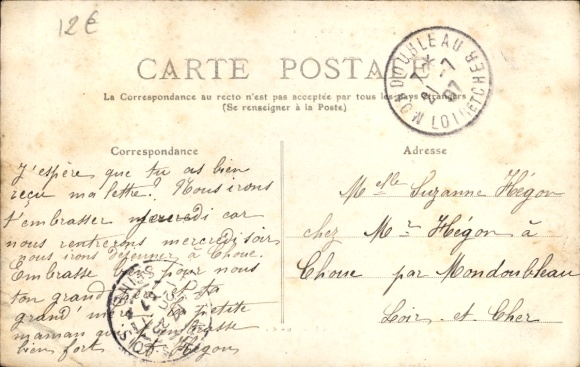 12€
CARTE POSTALE
La Correspondance au recto n'est pas acceptée par tous les pays étrangers
(Se renseigner à la Poste)
MONDOUBLEAU
LOIR ET CHER
07
Correspondance
J'espère que tu as bien
reçu ma lettre? Nous irons
t'embrasser mercredi car
nous rentrerons mercredi soir
nous irons déjeuner à Choue.
Embrasse bien pour nous
ton grand père et ta
grand'mère. Ta petite
maman qui t'embrasse
bien fort M. Hégon
Adresse
Melle Suzanne Hégon
chez Mr Hégon à
Choue par Mondoubleau
Loir et Cher